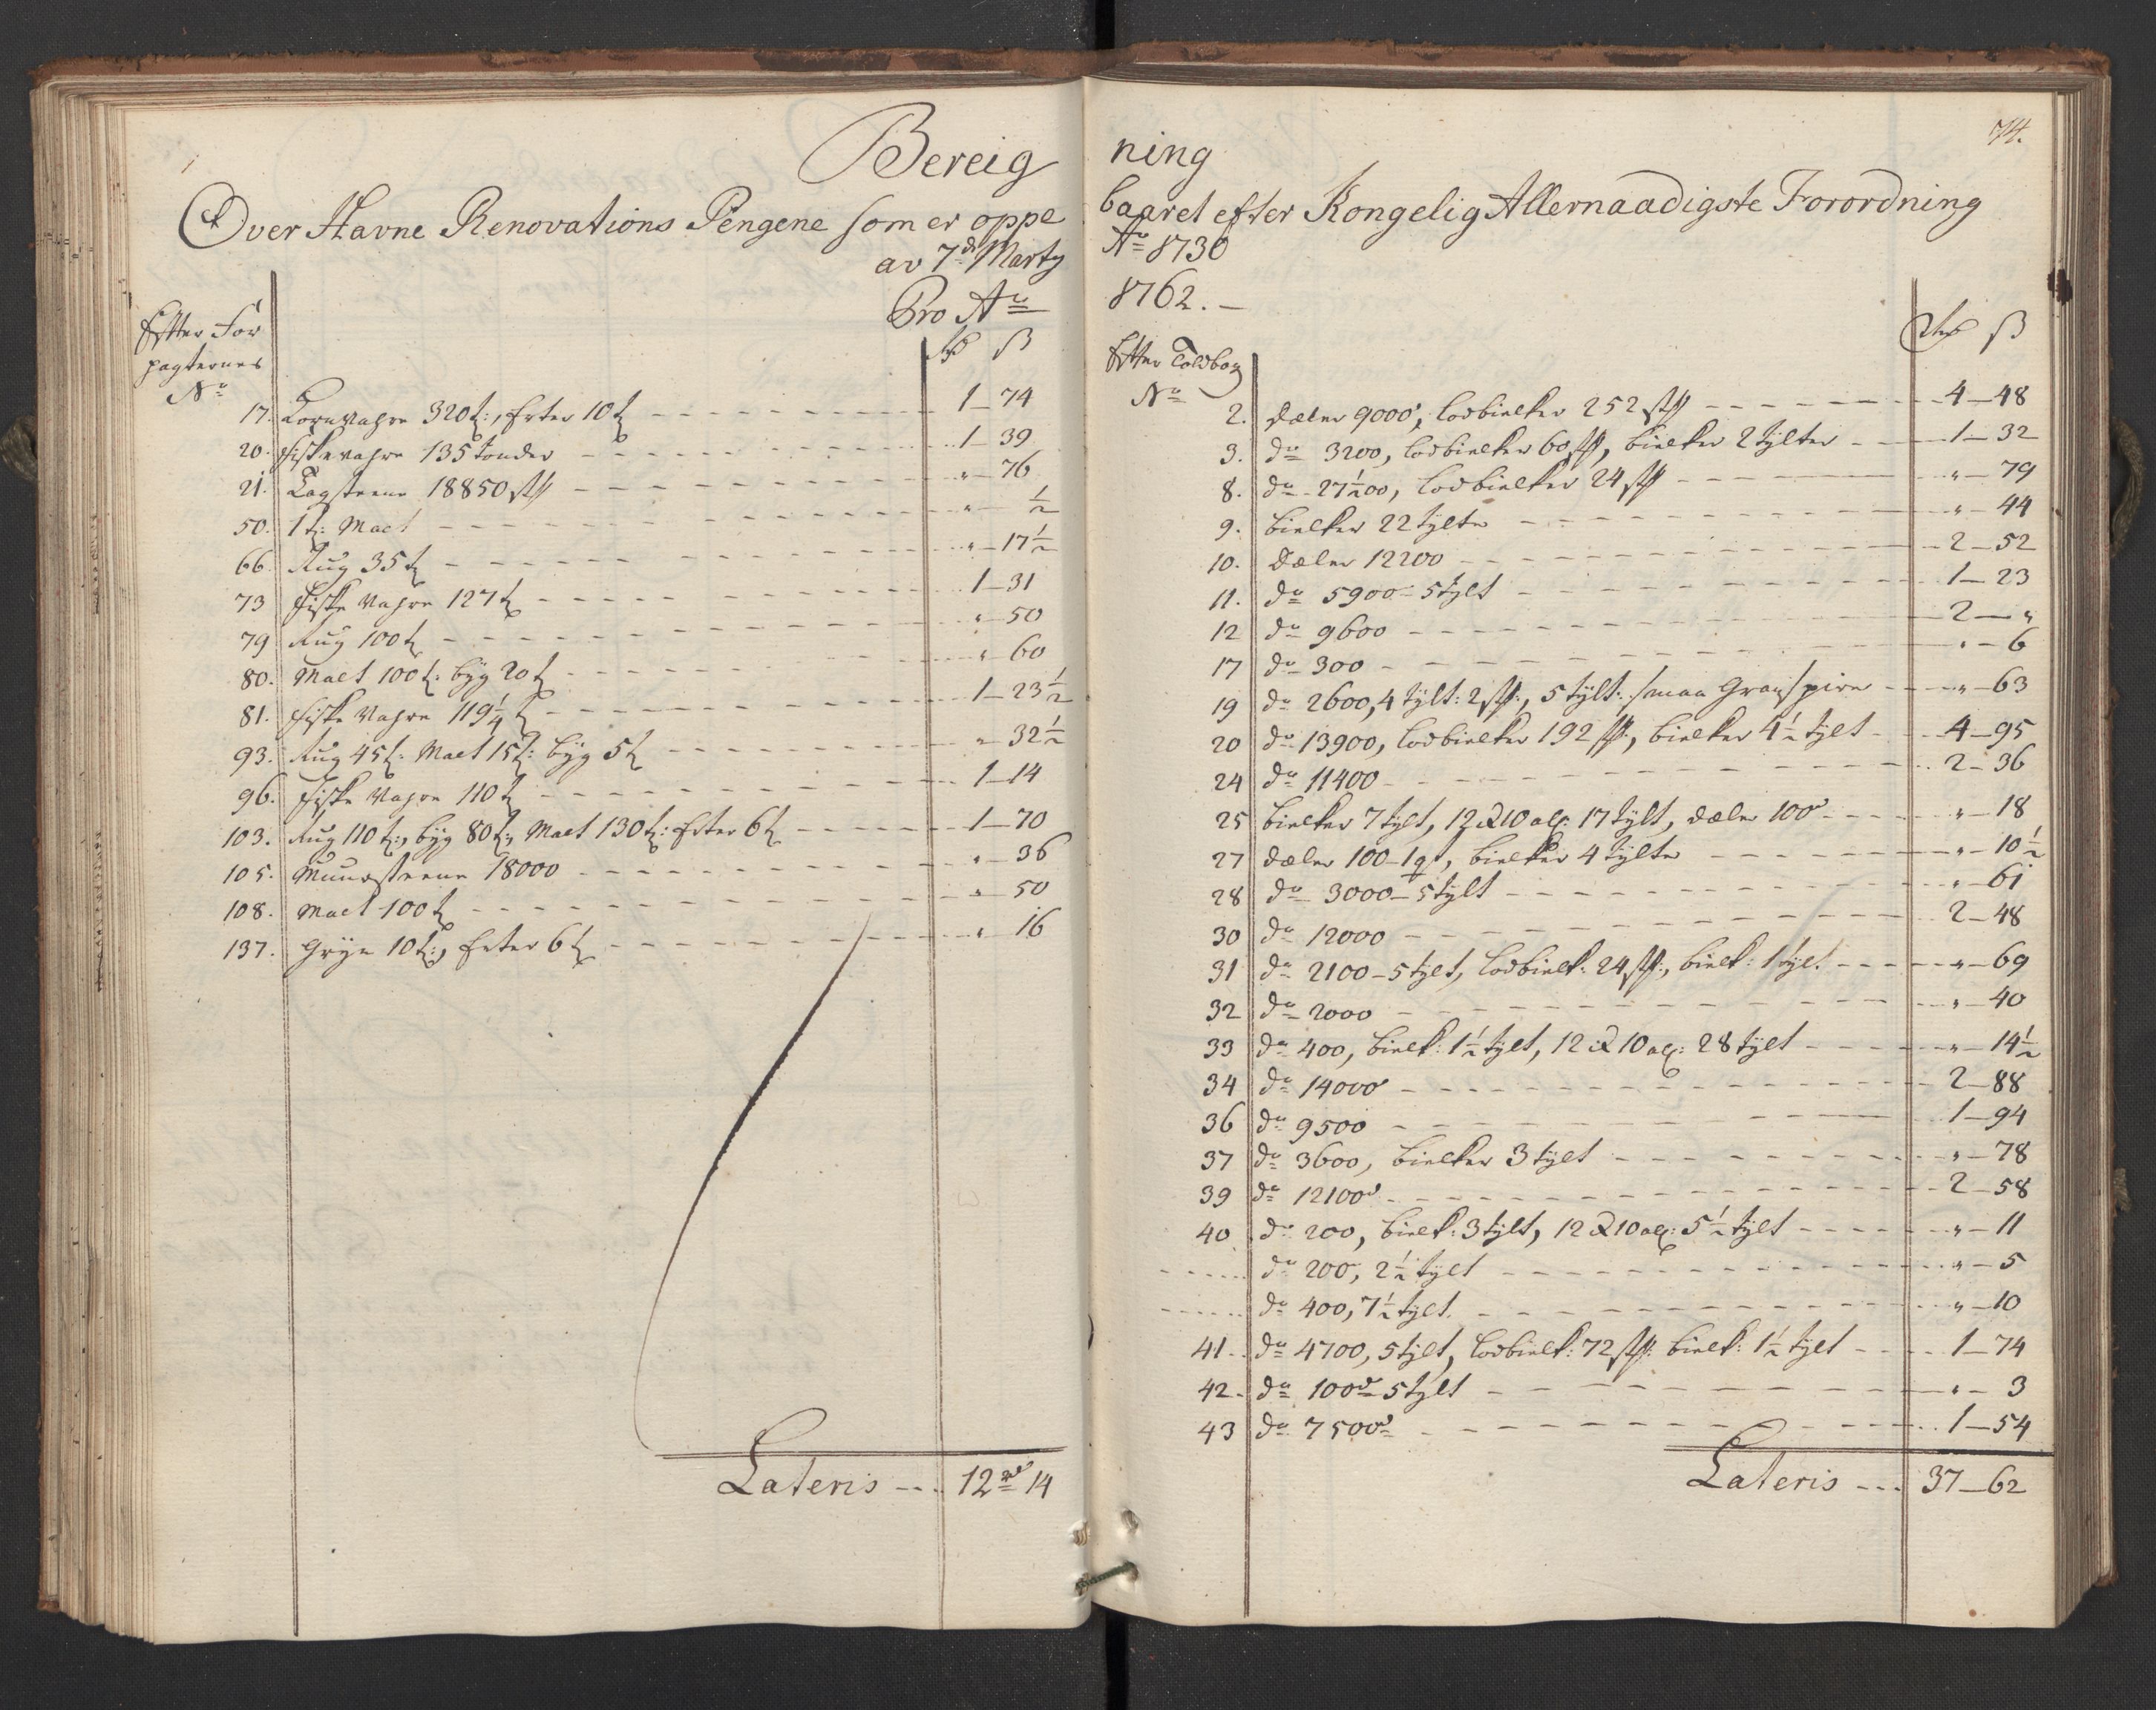 Bereig
Over Havne Renovations Pengene som er oppe
av 7de Marty
Pro Ao
Efter For
pagternes
No
Rdr ß
17. Kornvahre 320 t:, Erter 10 t 1 - 74
20. Fiskevahre 135 tønder 1 - 39
21. Tagsteene 18850 st " - 76
50. 1 t: Malt " - ½
66. Rug 35 t " - 17½
73 Fiske Vahre 127 t 1 - 31
79 Rug 100 t " - 50
80. Malt 100 t: byg 20 t " - 60
81. Fiske Vahre 119¼ t 1 - 23½
93. Rug 45 t: Malt 15 t: byg 5 t " - 32½
96. Fiske Vahre 110 t 1 - 14
103. Rug 110 t:, byg 80 t:, Malt 130 t: Erter 6 t 1 - 70
105. Muursteene 18000 " - 36
108. Malt 100 t " - 50
137. Gryn 10 t:, Erter 6 t " - 16
Lateris 12 rd 14
74.
ning
baaret efter Kongelig Allernaadigste Forordning
Ao 1730
1762.
Rdr ß
Efter Toldbog
No
2. Dæler 9000, lodbielker 252 st 4 - 48
3. do 3200, lodbielker 60 st, bielker 2 tylter 1 - 32
8. do 27½00, lodbielker 24 st " - 79
9. bielker 22 tylte " - 44
10. Dæler 12200 2 - 52
11. do 5900 - 5 tylt 1 - 23
12 do 9600 2 - "
17 do 300 " - 6
19 do 2600, 4 tylt: 2 st:, 5 tylt: smaa Granspire " - 63
20 do 13900, lodbielker 192 st:, bielker 4½ tylt 4 - 95
24 do 11400 2 - 36
25 bielker 7 tylt, 12 à 10 al: 17 tylt, dæler 100 " - 18
27 dæler 100 - 1 qt, bielker 4 tylte " - 10½
28 do 3000 - 5 tylt " - 61
30 do 12000 2 - 48
31 do 2100 - 5 tylt, lodbielk: 24 st:, bielk: 1 tylt " - 69
32 do 2000 " - 40
33 do 400, bielk: 1½ tylt, 12 à 10 al: 28 tylt " - 14½
34 do 14000 2 - 88
36 do 9500 1 - 94
37 do 3600, bielker 3 tylt " - 78
39 do 12100 2 - 58
40 do 200, bielk: 3 tylt, 12 à 10 al: 5½ tylt " - 11
do 200, 2½ tylt " - 5
do 400, 7½ tylt. " - 10
41 do 4700, 5 tylt, lodbielk: 72 st: bielk: 1½ tylt 1 - 74
42 do 100 - 5 tylt " - 3
43 do 7500 1 - 54
Lateris 37 - 62